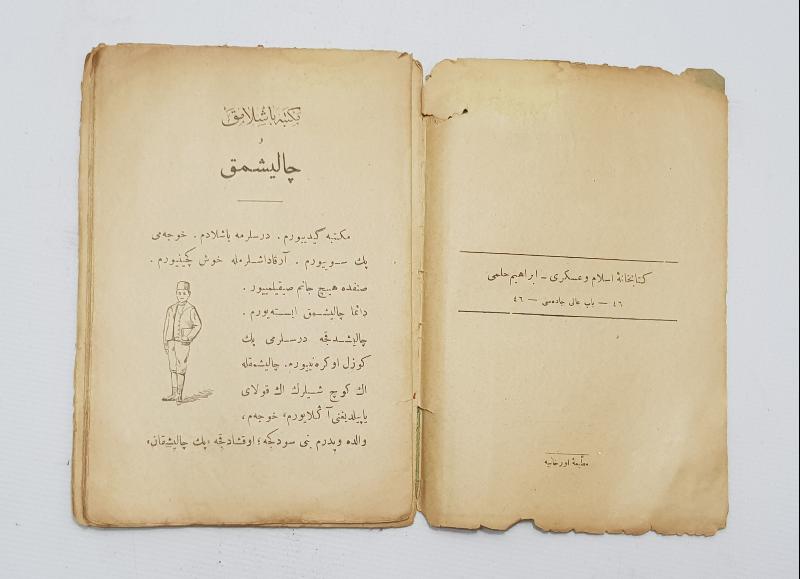 مكتبه باشلامق
و
چاليشمق
مكتبه گيديیورم . درسلرمه باشلادم . خوجه‌می
پك سـوییورم . آرقاداشـلرمله خوش كچینیورم .
صنفده هیچ جانم صیقیلمییور .
دائما چالیشمق ایسـته‌یورم .
چالیشـدقجه درسلرمی پك
كوزل اوكره‌نییورم . چالیشمقله
اك كوچ شـیلرك اك قولای
یاپیلدیغنی آڭلایورم . خوجه‌م ،
والده وپدرم بنی سودكجه ؛ اوقشادقجه «پك چالیشقان»
كتابخانهٔ اسلام وعسكری - ابراهیم حلمی
٤٦ — باب عالی جاده‌سی — ٤٦
مطبعهٔ اورخانیه